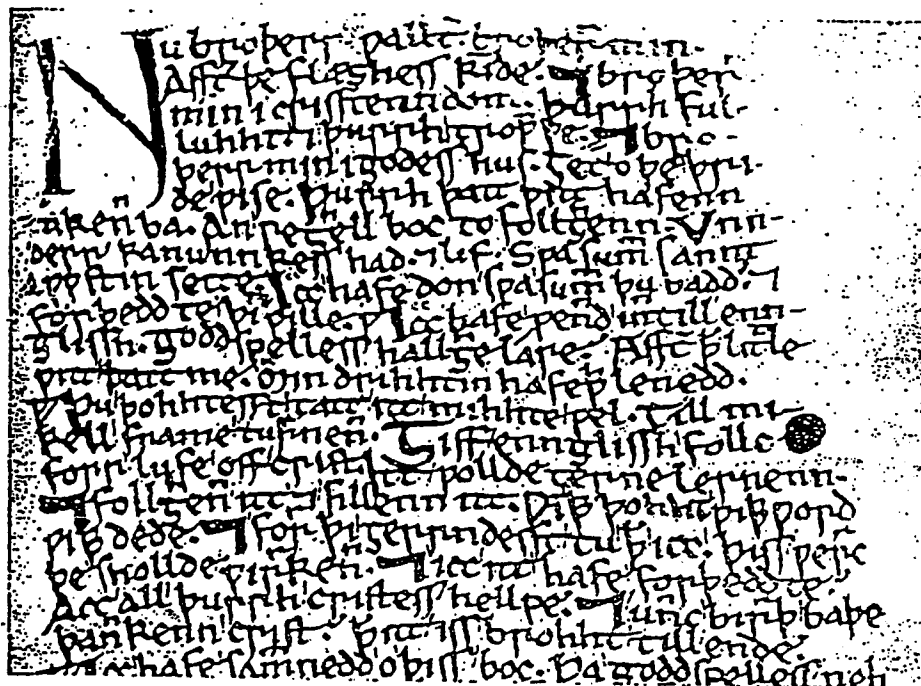 Nu broþerr ƿallt̄. broþerr min.
Afft̄ þe flæshess kīde. ⁊ broþerr
min i crisstenndom. þurrh ful-
luhht ⁊ þurrh troƿƿþe. ⁊ bro-
þerr min i godess hus. ȝet o þe þri-
de ƿise. þurrh þatt ƿitt hafenn
takeñ ba. An reȝhellboc to follȝhenn. Unn-
derr kanunnkess had ⁊ lif. Sƿa sum̄ sannt
aƿƿstin sette. Icc hafe don sƿa sum̄ þu badd. ⁊
forþedd te þin ƿille. Icc hafe ƿeñd iñtill enn-
glissh. goddspelless hallȝhe lare. Afft̄ þ̄ little
ƿitt þatt me. min drihhtin hafeþþ lenedd.
þu þohhtesst tatt itt mihhte ƿel. till mi-
kell frame turrneñ. Ȝiff ennglissh follc
forr lufe off crist. itt ƿollde ȝerne lernenn.
⁊ follȝheñ itt ⁊ fillenn itt. ƿiþþ þohht ƿiþþ ƿord
ƿiþþ dede. ⁊ forrþi ȝerrndesst tu þ̄ icc. þiss ƿerrc
þe shollde ƿirrkeñ. ⁊ icc itt hafe forþedd te
Acc all þurrh cristess hellpe. ⁊ uñc birrþ baþe
þañkenn crist. þatt iss brohht till ende.
Icc hafe sammnedd o þiss boc. þa goddspelless neh